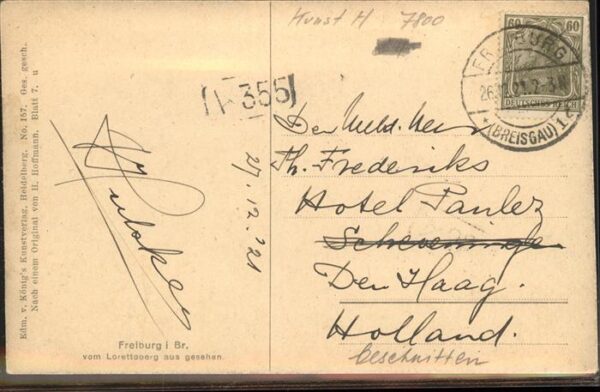 Kunst H 7800
60 60
DEUTSCHES REICH
FREIBURG
26.12.21. 2-3 N
*(BREISGAU) 1
355
Th. Frederiks
Hotel Paulez
Scheveninge
Den Haag.
Holland.
beschnitten
27.12.'21
Freiburg i Br.
vom Lorettoberg aus gesehen.
Edm. v. König's Kunstverlag, Heidelberg. No. 157. Ges. gesch.
Nach einem Original von H. Hoffmann. Blatt 7. u